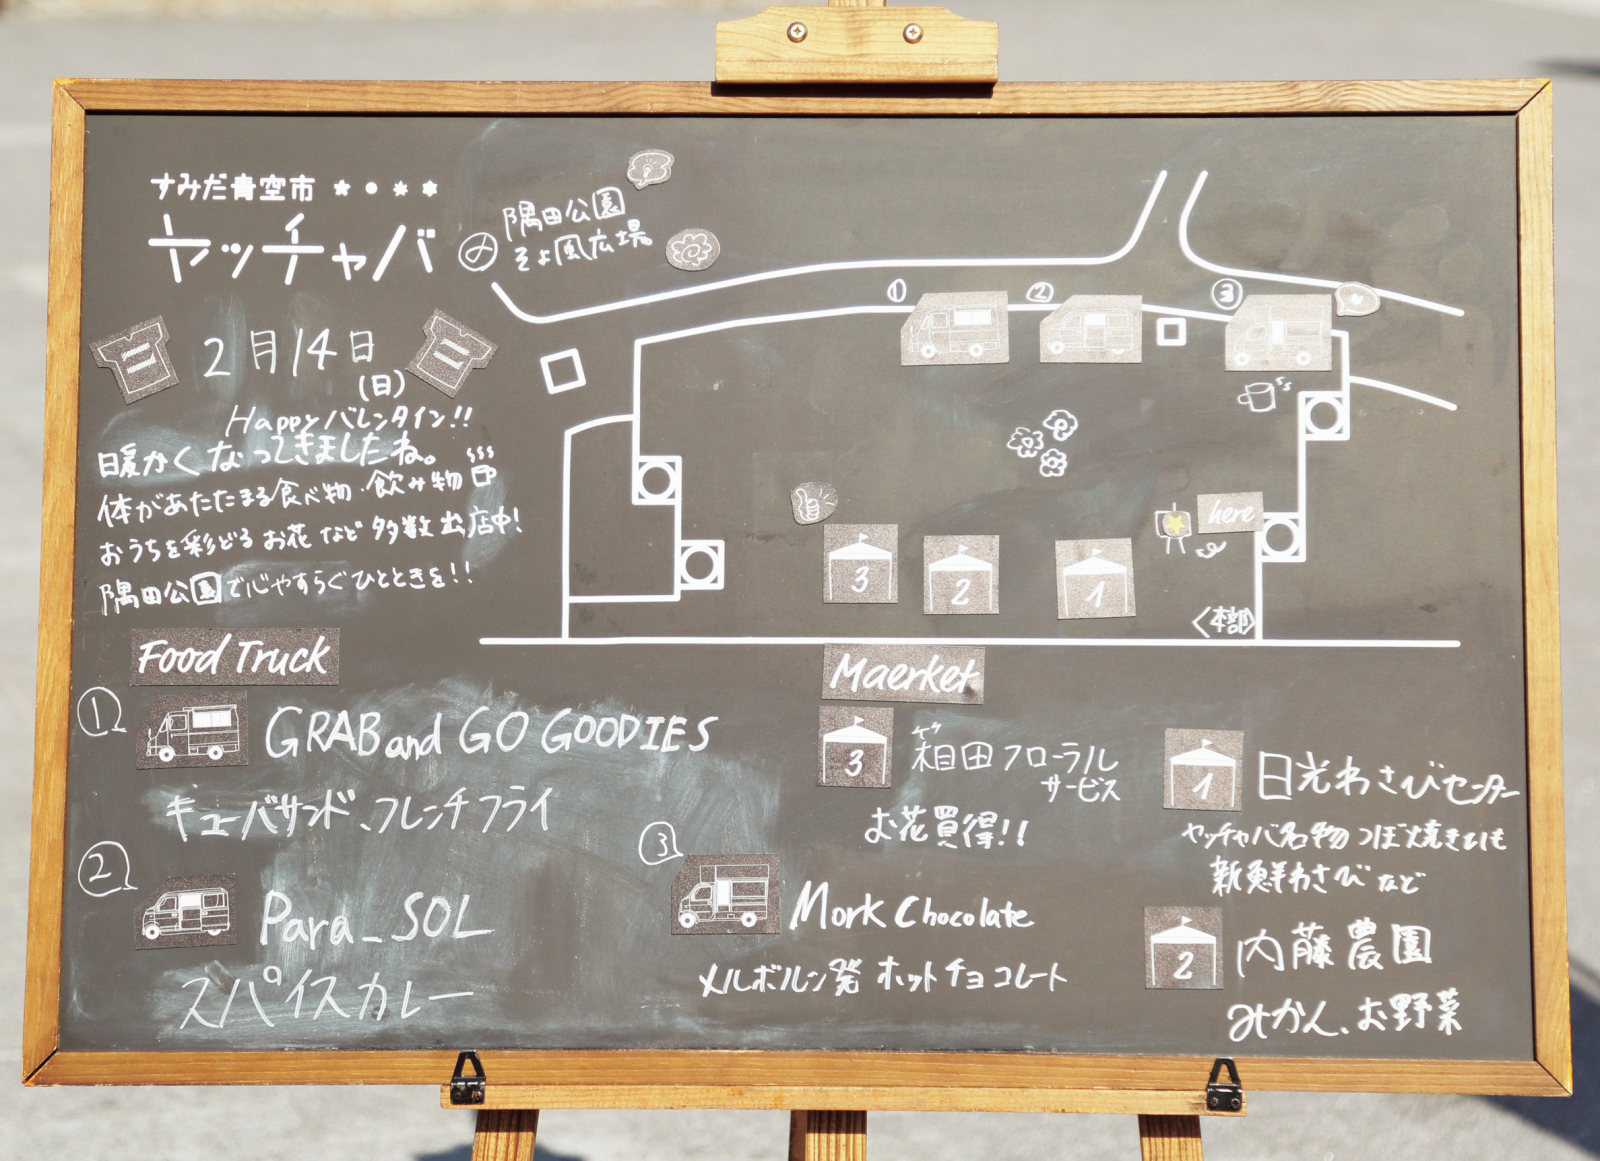 すみだ青空市
ヤッチャバ
@
隅田公園
そよ風広場
2月14日
(日)
Happyバレンタイン!!
暖かくなってきましたね。
体があたたまる食べ物・飲み物
おうちを彩どるお花など多数出店中!
隅田公園で心やすらぐひとときを!!
①
②
③
here
3
2
1
〈本部〉
Food Truck
①
GRAB and GO GOODIES
キューバサンド、フレンチフライ
②
Para_SOL
スパイスカレー
③
Mork Chocolate
メルボルン発 ホットチョコレート
Maerket
3
相田フローラル
サービス
お花買得!!
1
日光わさびセンター
ヤッチャバ名物つぼ焼きいも
新鮮わさびなど
2
内藤農園
みかん、お野菜